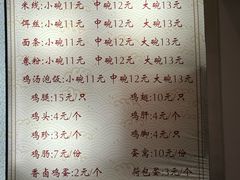 米线:小碗11元 中碗12元 大碗13元
饵丝:小碗11元 中碗12元 大碗13元
面条:小碗11元 中碗12元 大碗13元
卷粉:小碗11元 中碗12元 大碗13元
鸡汤泡饭:小碗11元 中碗12元 大碗13元
鸡腿:15元/只 鸡翅:10元/只
鸡头:4元/个 鸡肝:4元/个
鸡珍:3元/个 鸡脚:4元/只
鸡肠:7元/份 鸡窝:10元/份
香卤鸡蛋:2元/个 荷包蛋:3元/个